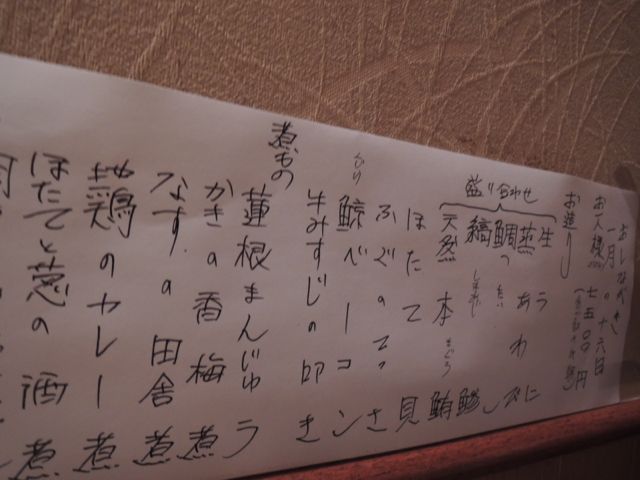 おしながき
一月の十六日
お一人様 七五〇〇円
お造り
盛り合わせ
生うに
蒸あわび
鯛
縞鯵
天然本鮪
まぐろ
ほたて貝
ふぐのてっさ
鯨ベーコン
牛みすじの叩き
煮もの
蓮根まんじゅう
かきの香梅煮
なすの田舎煮
地鶏のカレー煮
ほたてと葱の酒煮